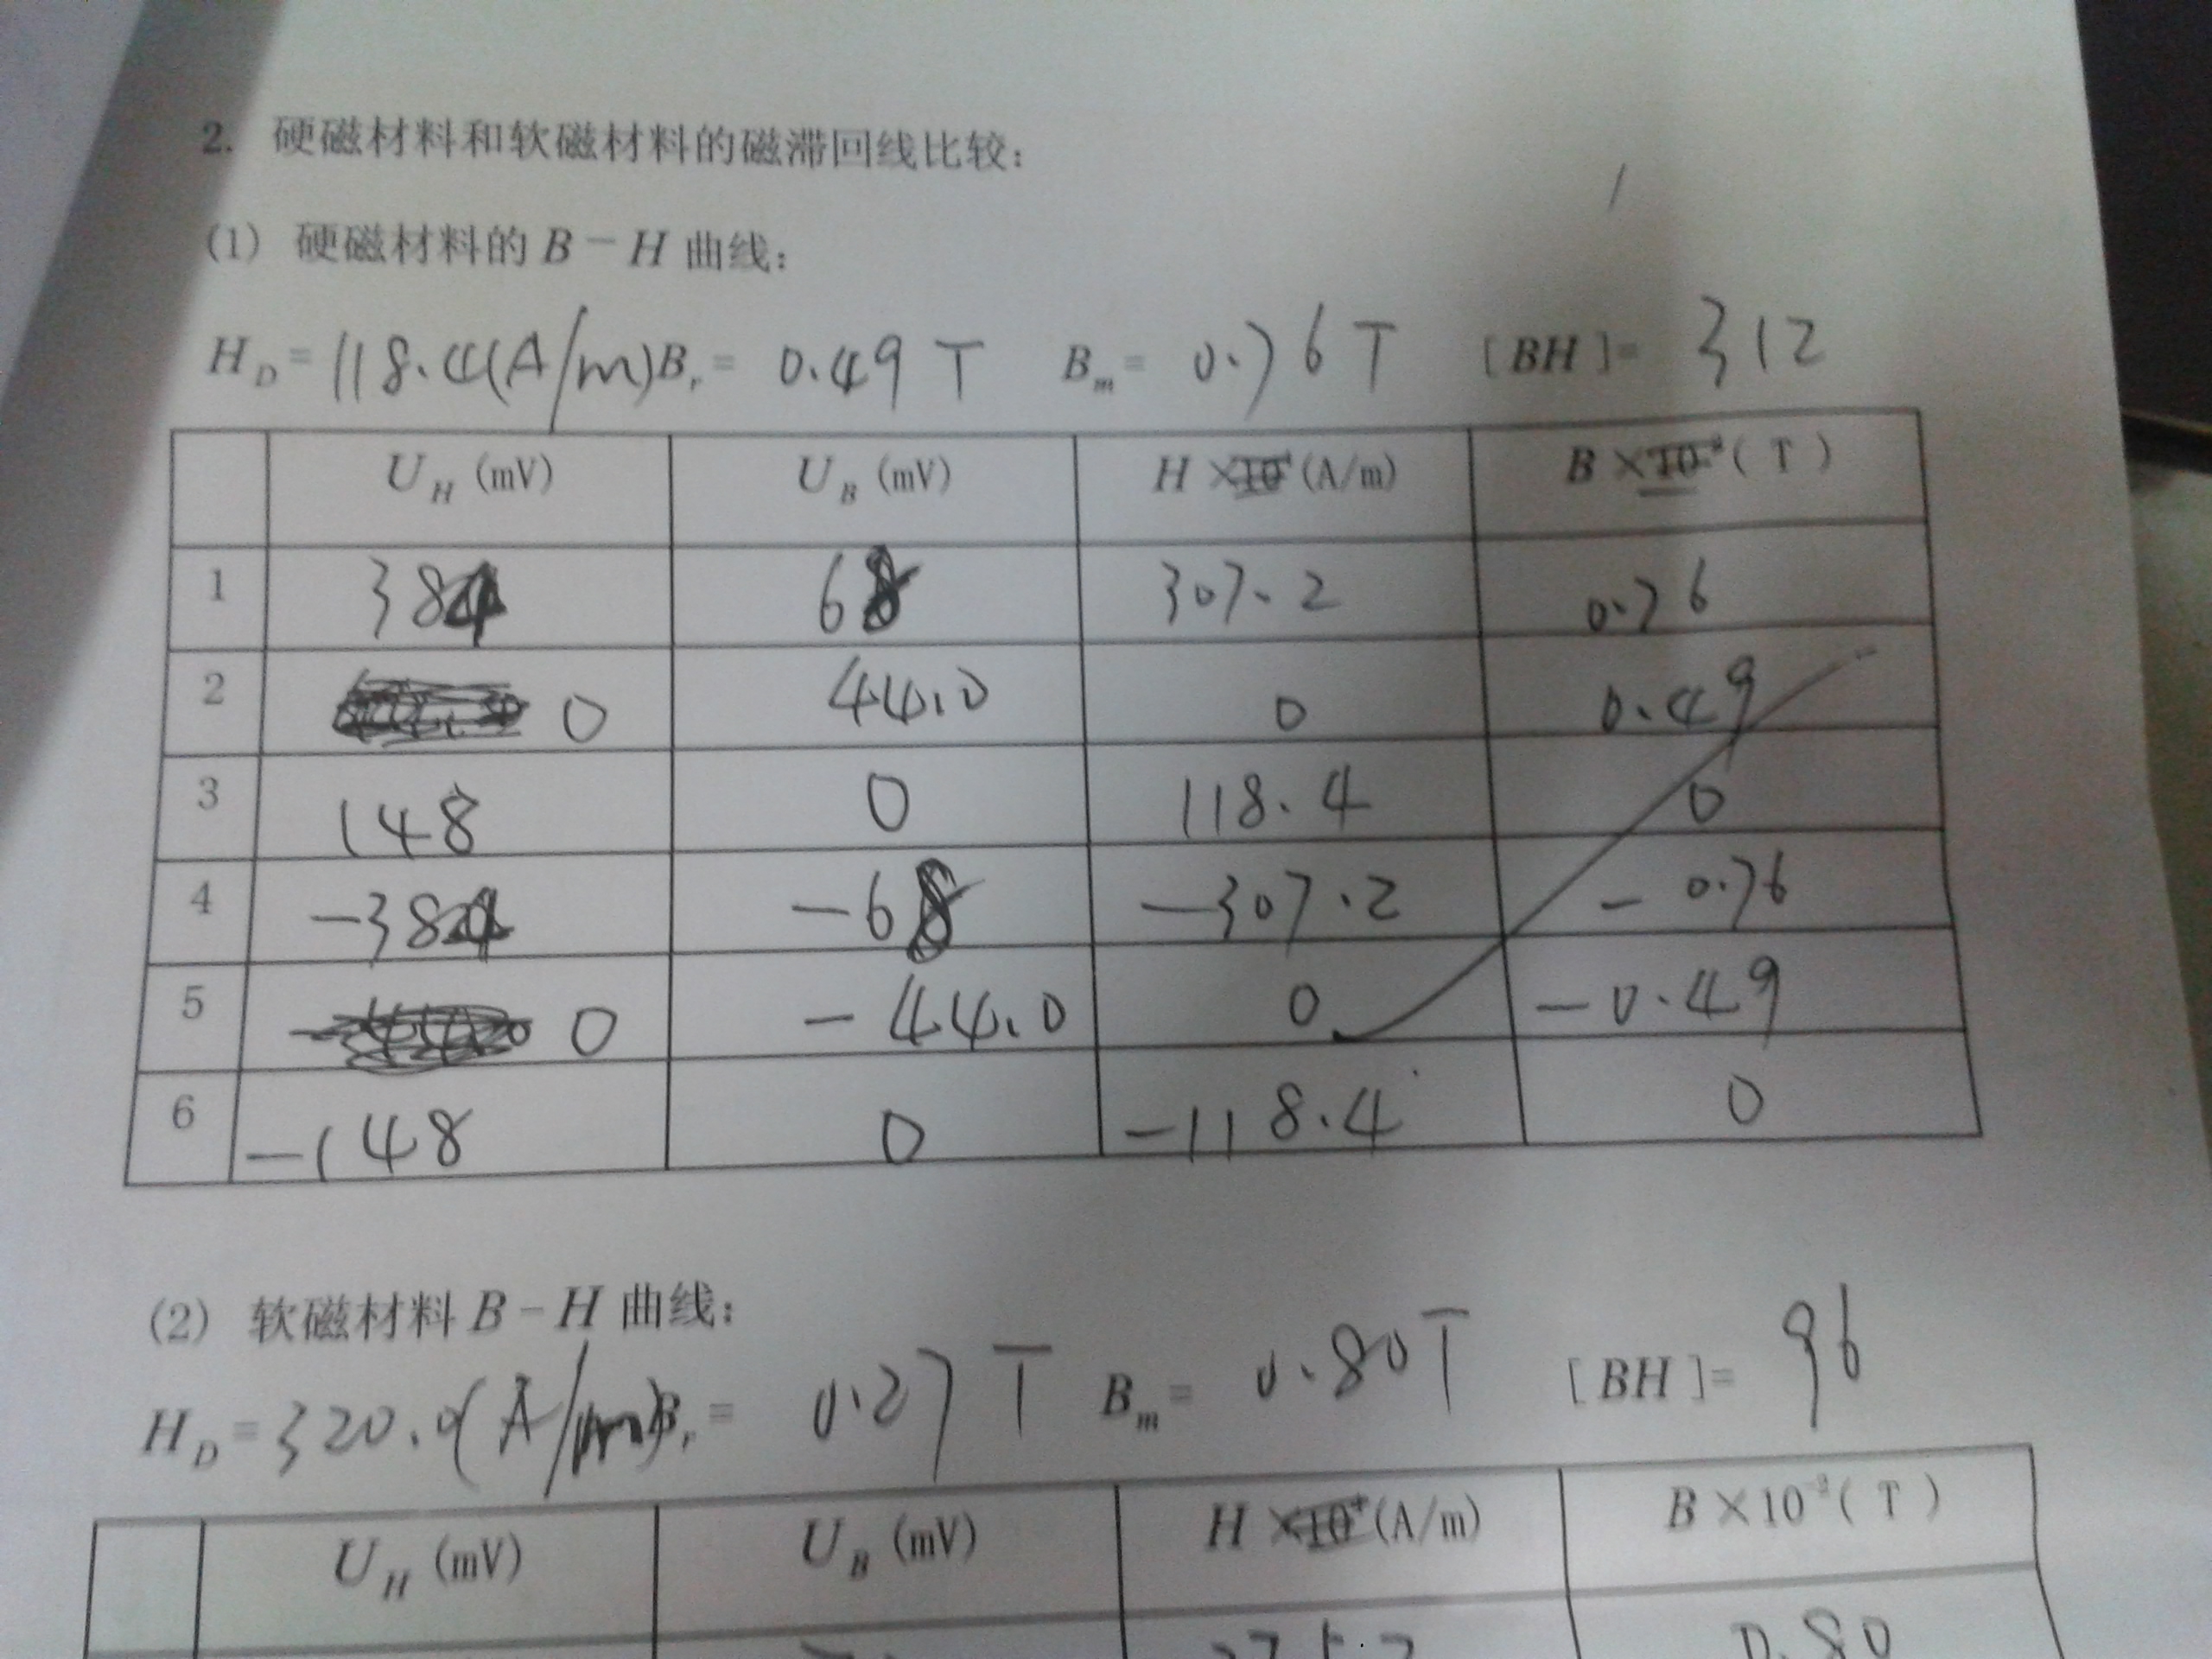 2. 硬磁材料和软磁材料的磁滞回线比较:
(1) 硬磁材料的 B－H 曲线:
H_D = 118.4(A/m) B_r = 0.49 T B_m = 0.76 T [BH] = 312
U_H (mV) U_B (mV) H × (A/m) B × (T)
1 384 68 307.2 0.76
2 0 44.0 0 0.49
3 148 0 118.4 0
4 －384 －68 －307.2 －0.76
5 0 －44.0 0 －0.49
6 －148 0 －118.4 0
(2) 软磁材料 B－H 曲线:
H_D = 320.0(A/m) B_r = 0.27 T B_m = 0.80T [BH] = 96
U_H (mV) U_B (mV) H × (A/m) B×10⁻³( T )
0.80